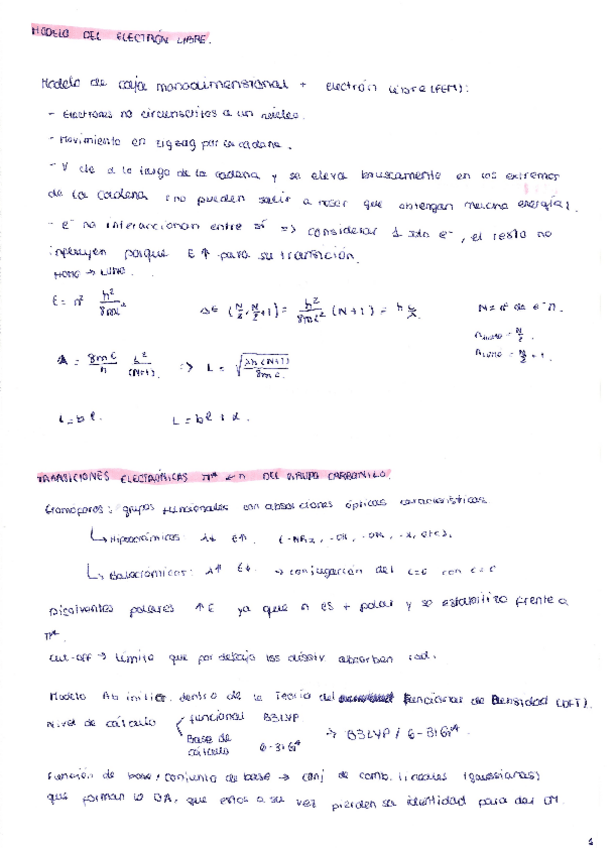 MODELO DEL ELECTRÓN LIBRE.
Modelo de caja monodimensional + electrón libre (FEM):
- Electrones no circunscritos a un núcleo.
- Movimiento en zigzag por la cadena.
- V cte a lo largo de la cadena y se eleva bruscamente en los extremos
de la cadena (no pueden salir a no ser que obtengan mucha energía).
- e⁻ no interaccionan entre sí => considerar 1 solo e⁻, el resto no
influyen porque E ↑ para su transición.
HOMO → LUMO.
E = n² h²/8mL²   ΔE (N/2, N/2+1) = h²/8mL² (N+1) = h c/λ   N = nº de e⁻ π.
n HOMO = N/2.
n LUMO = N/2 + 1.
λ = 8mc/h L²/(N+1) => L = √(λh(N+1)/8mc)
L = bl.   L = bl + α.
TRANSICIONES ELECTRÓNICAS π* ← n DEL GRUPO CARBONILO.
Cromóforos: grupos funcionales con absorciones ópticas características
↳ Hipsocrómicos: λ↓ E↑. (-NR₂, -OH, -OR, -X, etc).
↳ Batocrómicos: λ↑ E↓ → conjugación del C=O con C=C
Disolventes polares ↑E ya que n es + polar y se estabiliza frente a
π*.
Cut-off → límite que por debajo los disolv. absorben rad.
Modelo Ab initio. dentro de la Teoría del Funcional de Densidad (DFT).
Nivel de cálculo
funcional B3LYP
Base de cálculo 6-31G*
→ B3LYP / 6-31G*.
Función de base / conjunto de base → conj de comb. lineales (gaussianas)
que forman lo OA, que estos a su vez pierden su identidad para dar OM.
1